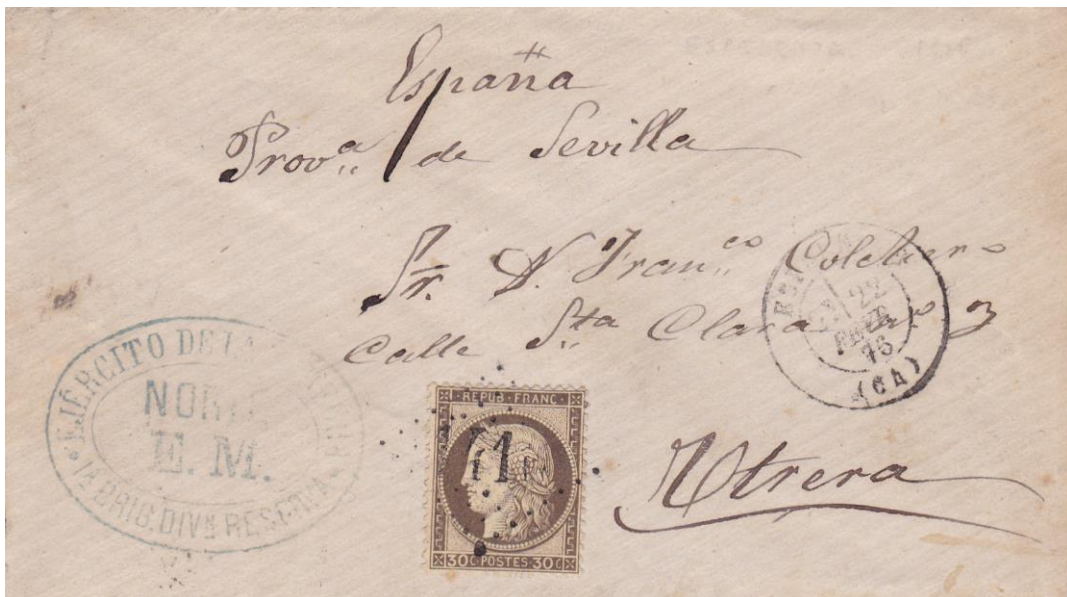 España
Prov.ª de Sevilla
Sr. D. Fran.co
Calle S.ta Clara 3
Utrera
EJÉRCITO DE LA
NOR
E. M.
1A BRIG. DIVN RESERVA
22
FEVR
76
(64)
REPUB · FRANC ·
30C·POSTES·30C